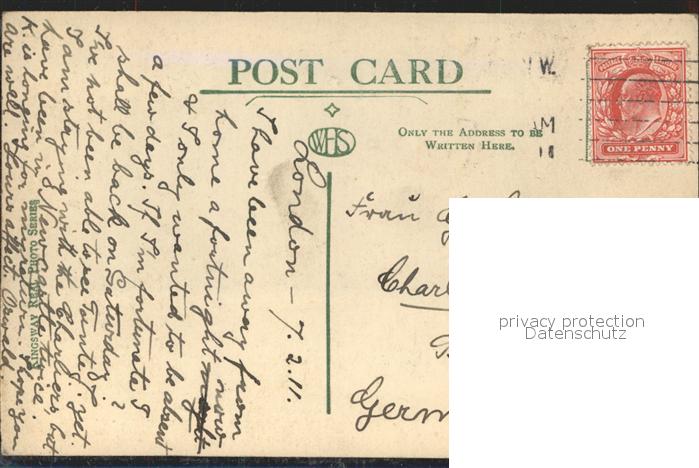 POST CARD
WHS
ONLY THE ADDRESS TO BE
WRITTEN HERE.
W.
AM
11
ONE PENNY
KINGSWAY REAL PHOTO SERIES
London – 7.2.11.
I have been away from
home a fortnight now
& I only wanted to be absent
a few days. If I'm fortunate I
shall be back on Saturday?
I've not been able to see Tante J. yet
I am staying with the Charliers, but
have been in Newcastle twice.
K. is longing for my return. Hope you
are well. Yours affect. Oswald
Frau
Charl
Germ
privacy protection
Datenschutz